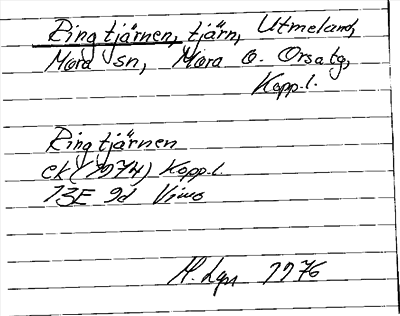 Ringtjärnen, tjärn, Utmeland,
Mora sn, Mora o. Orsa tg,
Kopp.l.
Ringtjärnen
ek (1974) Kopp.l.
13E 9d Vimo
H. Lgn 1976